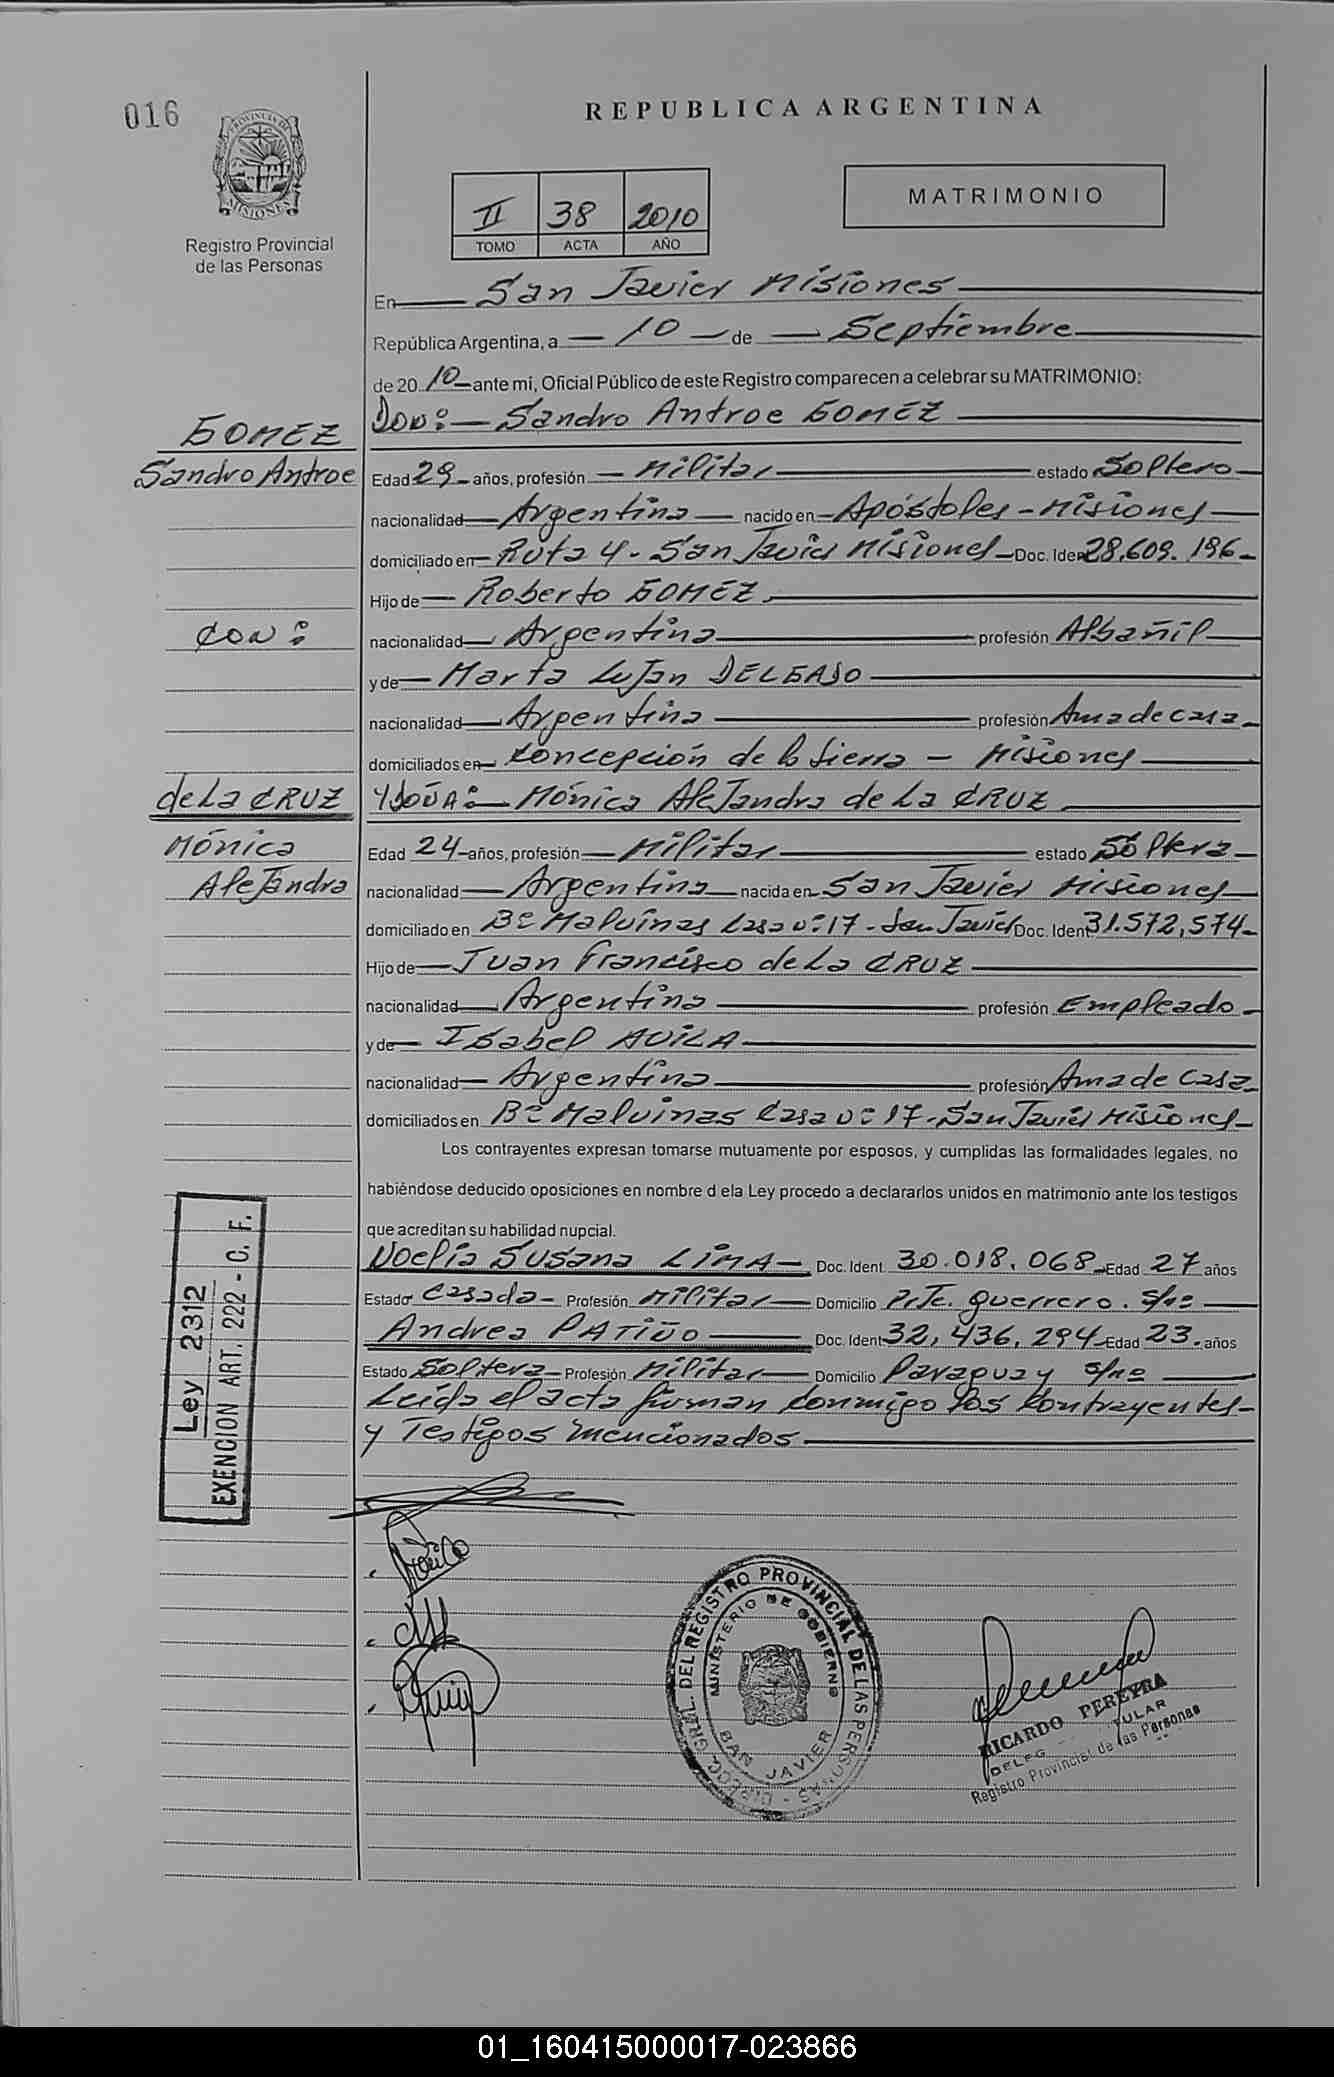 016
REPUBLICA ARGENTINA
PROVINCIA DE
MISIONES
Registro Provincial
de las Personas
II 38 2010
TOMO ACTA AÑO
MATRIMONIO
En San Javier Misiones
República Argentina, a 10 de Septiembre
de 20 10 ante mi, Oficial Público de este Registro comparecen a celebrar su MATRIMONIO:
GOMEZ
Sandro Antroe
Don: Sandro Antroe GOMEZ
Edad 29 años, profesión Militar estado Soltero
nacionalidad Argentina nacido en Apóstoles - Misiones
domiciliado en Ruta 4 - San Javier Misiones Doc. Iden 28.609.196
Hijo de Roberto GOMEZ
con:
nacionalidad Argentina profesión Albañil
y de Marta Lujan DELGADO
nacionalidad Argentina profesión Ama de casa
domiciliados en Concepción de la Sierra - Misiones
de La CRUZ
Mónica
Alejandra
y Doña: Mónica Alejandra de La CRUZ
Edad 24 años, profesión Militar estado Soltera
nacionalidad Argentina nacida en San Javier Misiones
domiciliado en Bº Malvinas Casa nº 17 - San Javier Doc. Iden 31.572,574
Hijo de Juan Francisco de La CRUZ
nacionalidad Argentina profesión Empleado
y de Isabel AVILA
nacionalidad Argentina profesión Ama de Casa
domiciliados en Bº Malvinas Casa nº 17 - San Javier Misiones
Los contrayentes expresan tomarse mutuamente por esposos, y cumplidas las formalidades legales, no
habiéndose deducido oposiciones en nombre d ela Ley procedo a declararlos unidos en matrimonio ante los testigos
que acreditan su habilidad nupcial.
Noelia Susana LIMA Doc. Ident. 30.018.068 Edad 27 años
Estado Casada Profesión Militar Domicilio Pte. Guerrero. s/nº
Andrea PATIÑO Doc. Ident 32,436,294 Edad 23 años
Estado Soltera Profesión Militar Domicilio Paraguay s/nº
Leida el acta firman conmigo los Contrayentes
y Testigos mencionados
Ley 2312
EXENCION ART. 222 - C. F.
DIRECC. GRAL. DEL REGISTRO PROVINCIAL DE LAS PERSONAS
MINISTERIO DE GOBIERNO
SAN JAVIER
RICARDO PEREYRA
Registro Provincial de las Personas
01_160415000017-023866